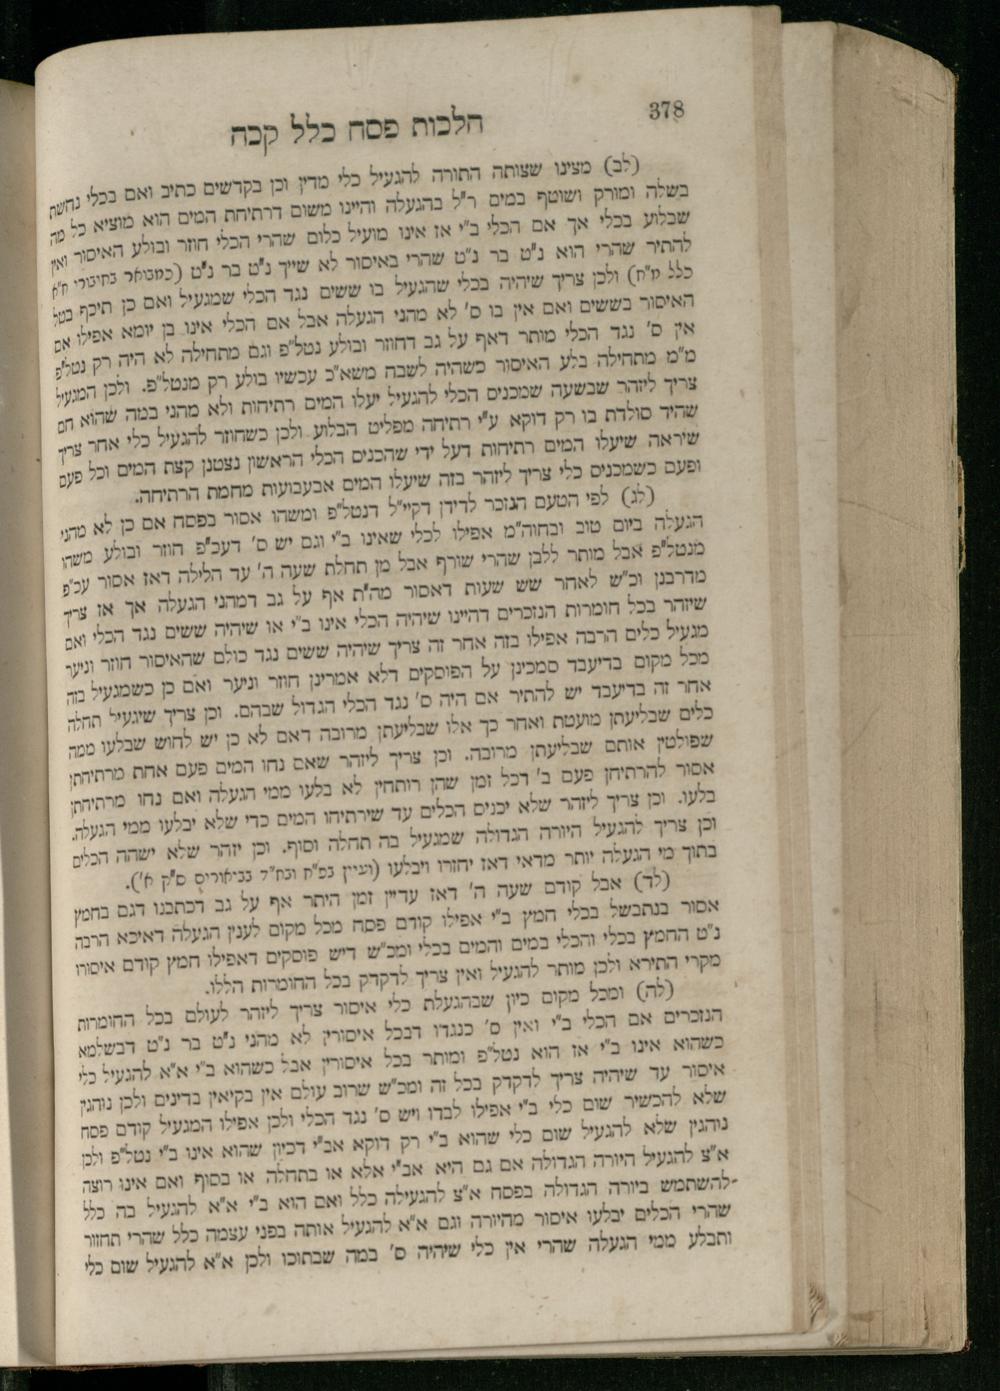 378
הלכות פסח כלל קכה
(לב) מצינו שצותה התורה להגעיל כלי מדין וכן בקדשים כתיב ואם בכלי נחשת
בשלה ומורק ושוטף במים ר"ל בהגעלה והיינו משום דרתיחת המים הוא מוציא כל מה
שבלוע בכלי אך אם הכלי ב"י אז אינו מועיל כלום שהרי הכלי חוזר ובולע האיסור ואין
להתיר שהרי הוא נ"ט בר נ"ט שהרי באיסור לא שייך נ"ט בר נ"ט (כמבואר בחיבורי ח"א
כלל מ"ח) ולכן צריך שיהיה בכלי שהגעיל בו ששים נגד הכלי שמגעיל ואם כן תיכף בטל
האיסור בששים ואם אין בו ס' לא מהני הגעלה אבל אם הכלי אינו בן יומא אפילו אם
אין ס' נגד הכלי מותר דאף על גב דחוזר ובולע נטל"פ וגם מתחילה לא היה רק נטל"פ
מ"מ מתחילה בלע האיסור כשהיה לשבח משא"כ עכשיו בולע רק מנטל"פ. ולכן המגעיל
צריך ליזהר שבשעה שמכנים הכלי להגעיל יעלו המים רתיחות ולא מהני במה שהוא חם
שהיד סולדת בו רק דוקא ע"י רתיחה מפליט הבלוע ולכן כשחוזר להגעיל כלי אחר צריך
שיראה שיעלו המים רתיחות דעל ידי שהכנים הכלי הראשון נצטנן קצת המים וכל פעם
ופעם כשמכנים כלי צריך ליזהר בזה שיעלו המים אבעבועות מחמת הרתיחה.
(לג) לפי הטעם הנזכר לדידן דקיי"ל דנטל"פ ומשהו אסור בפסח אם כן לא מהני
הגעלה ביום טוב ובחוה"מ אפילו לכלי שאינו ב"י וגם יש ס' דעכ"פ חוזר ובולע משהו
מנטל"פ אבל מותר ללבן שהרי שורף אבל מן תחלת שעה ה' עד הלילה דאז אסור עכ"פ
מדרבנן וכ"ש לאחר שש שעות דאסור מה"ת אף על גב דמהני הגעלה אך אז צריך
שיזהר בכל חומרות הנזכרים דהיינו שיהיה הכלי אינו ב"י או שיהיה ששים נגד הכלי ואם
מגעיל כלים הרבה אפילו בזה אחר זה צריך שיהיה ששים נגד כולם שהאיסור חוזר וניער
מכל מקום בדיעבד סמכינן על הפוסקים דלא אמרינן חוזר וניער ואם כן כשמגעיל בזה
אחר זה בדיעבד יש להתיר אם היה ס' נגד הכלי הגדול שבהם. וכן צריך שיגעיל תחלה
כלים שבליעתן מועטת ואחר כך אלו שבליעתן מרובה דאם לא כן יש לחוש שבלעו ממה
שפולטין אותם שבליעתן מרובה. וכן צריך ליזהר שאם נחו המים פעם אחת מרתיחתן
אסור להרתיחן פעם ב' דכל זמן שהן רותחין לא בלעו ממי הגעלה ואם נחו מרתיחתן
בלעו. וכן צריך ליזהר שלא יכנים הכלים עד שירתיחו המים כדי שלא יבלעו ממי הגעלה.
וכן צריך להגעיל היורה הגדולה שמגעיל בה תחלה וסוף. וכן יזהר שלא ישהה הכלים
בתוך מי הגעלה יותר מדאי דאז יחזרו ויבלעו (ועיין בפ"ח ובח"ד בביאורים ס"ק ח').
(לד) אבל קודם שעה ה' דאז עדיין זמן היתר אף על גב דכתבנו דגם בחמץ
אסור בנתבשל בכלי חמץ ב"י אפילו קודם פסח מכל מקום לענין הגעלה דאיכא הרבה
נ"ט החמץ בכלי והכלי במים והמים בכלי ומכ"ש דיש פוסקים דאפילו חמץ קודם איסורו
מקרי התירא ולכן מותר להגעיל ואין צריך לדקדק בכל החומרות הללו.
(לה) ומכל מקום כיון שבהגעלת כלי איסור צריך ליזהר לעולם בכל החומרות
הנזכרים אם הכלי ב"י ואין ס' כנגדו דבכל איסורין לא מהני נ"ט בר נ"ט דבשלמא
כשהוא אינו ב"י אז הוא נטל"פ ומותר בכל איסורין אבל כשהוא ב"י א"א להגעיל כלי
איסור עד שיהיה צריך לדקדק בכל זה ומכ"ש שרוב עולם אין בקיאין בדינים ולכן נוהגין
שלא להכשיר שום כלי ב"י אפילו לבדו ויש ס' נגד הכלי ולכן אפילו המגעיל קודם פסח
נוהגין שלא להגעיל שום כלי שהוא ב"י רק דוקא אב"י דכיון שהוא אינו ב"י נטל"פ ולכן
א"צ להגעיל היורה הגדולה אם גם היא אב"י אלא או בתחלה או בסוף ואם אינו רוצה
להשתמש ביורה הגדולה בפסח א"צ להגעילה כלל ואם הוא ב"י א"א להגעיל בה כלל
שהרי הכלים יבלעו איסור מהיורה וגם א"א להגעיל אותה בפני עצמה כלל שהרי תחזור
ותבלע ממי הגעלה שהרי אין כלי שיהיה ס' במה שבתוכו ולכן א"א להגעיל שום כלי